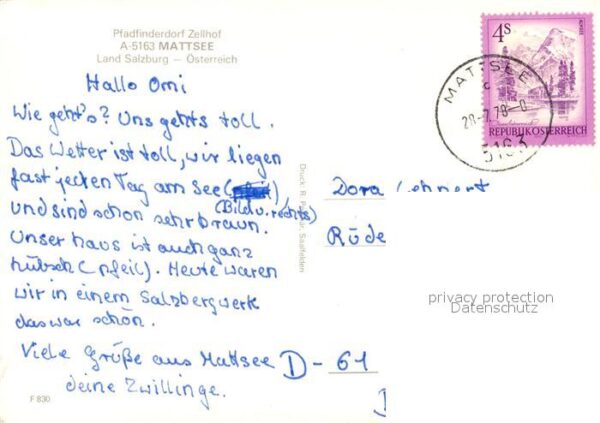 Pfadfinderdorf Zellhof
A-5163 MATTSEE
Land Salzburg — Österreich
Hallo Omi
Wie geht's? Uns gehts toll.
Das Wetter ist toll, wir liegen
fast jeden Tag am See (pfeil)
(Bild u. rechts)
und sind schon sehr braun.
Unser haus ist auch ganz
hübsch (pfeil). Heute waren
wir in einem Salzbergwerk
das war schön.
Viele Grüße aus Mattsee
deine Zwillinge.
F 830
Druck: R. Saalfelden
4S
REPUBLIK ÖSTERREICH
MATTSEE
c
5163
Dora Lehnert
Rüde
D-61
privacy protection
Datenschutz